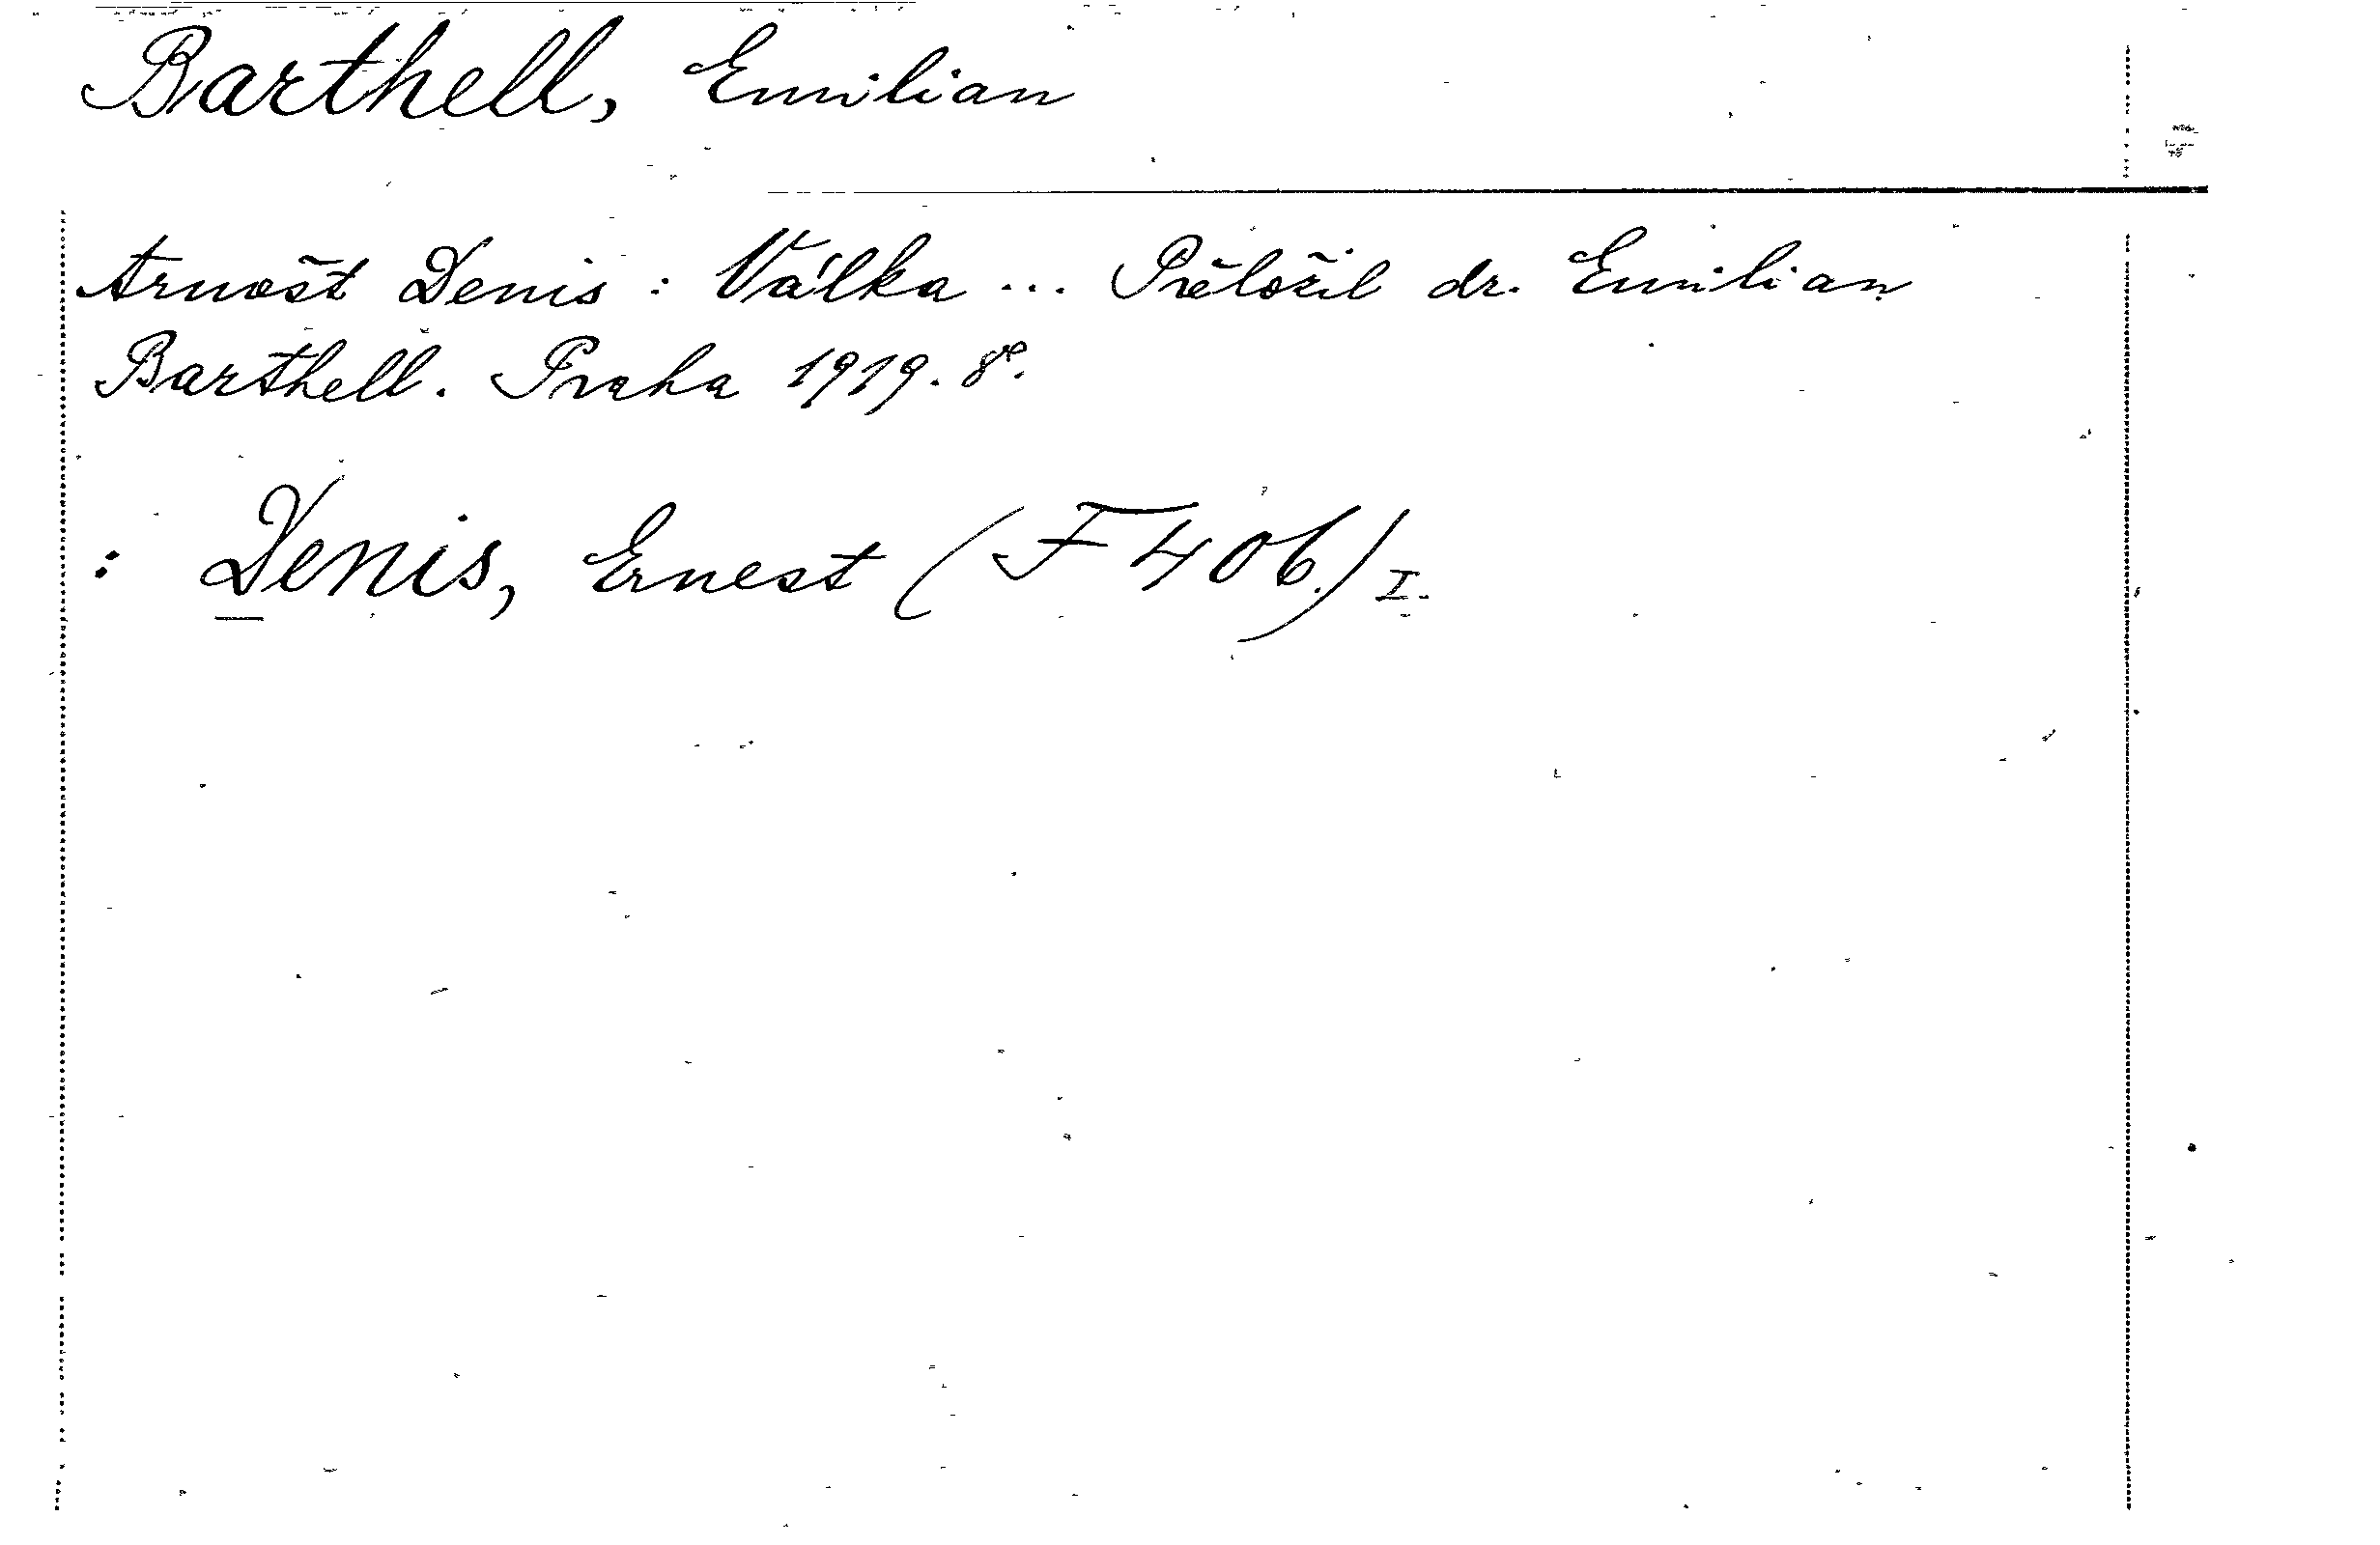 Barthell, Emilian
Arnošt Denis: Válka ... Přeložil dr. Emilian
Barthell. Praha 1919. 8°.
: Denis, Ernest (F 406.) I.